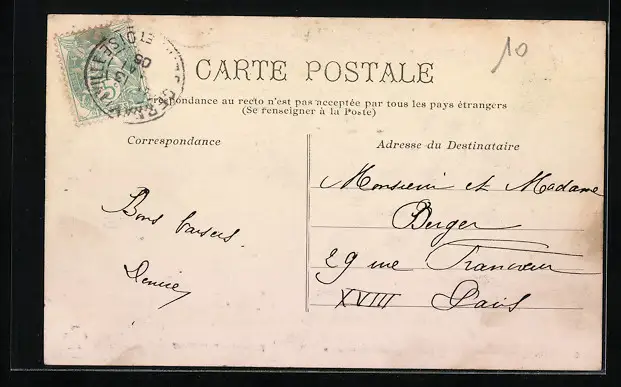 10
CARTE POSTALE
respondance au recto n'est pas acceptée par tous les pays étrangers
(Se renseigner à la Poste)
Correspondance
Adresse du Destinataire
Bons baisers
Denise
Monsieur et Madame
Berger
29 rue Francœur
XVIII Paris